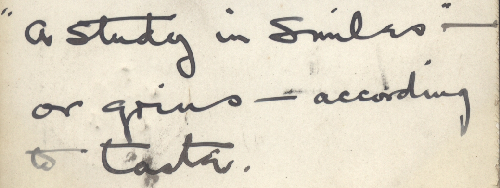 "A Study in Smiles" —
or grins — according
to taste.